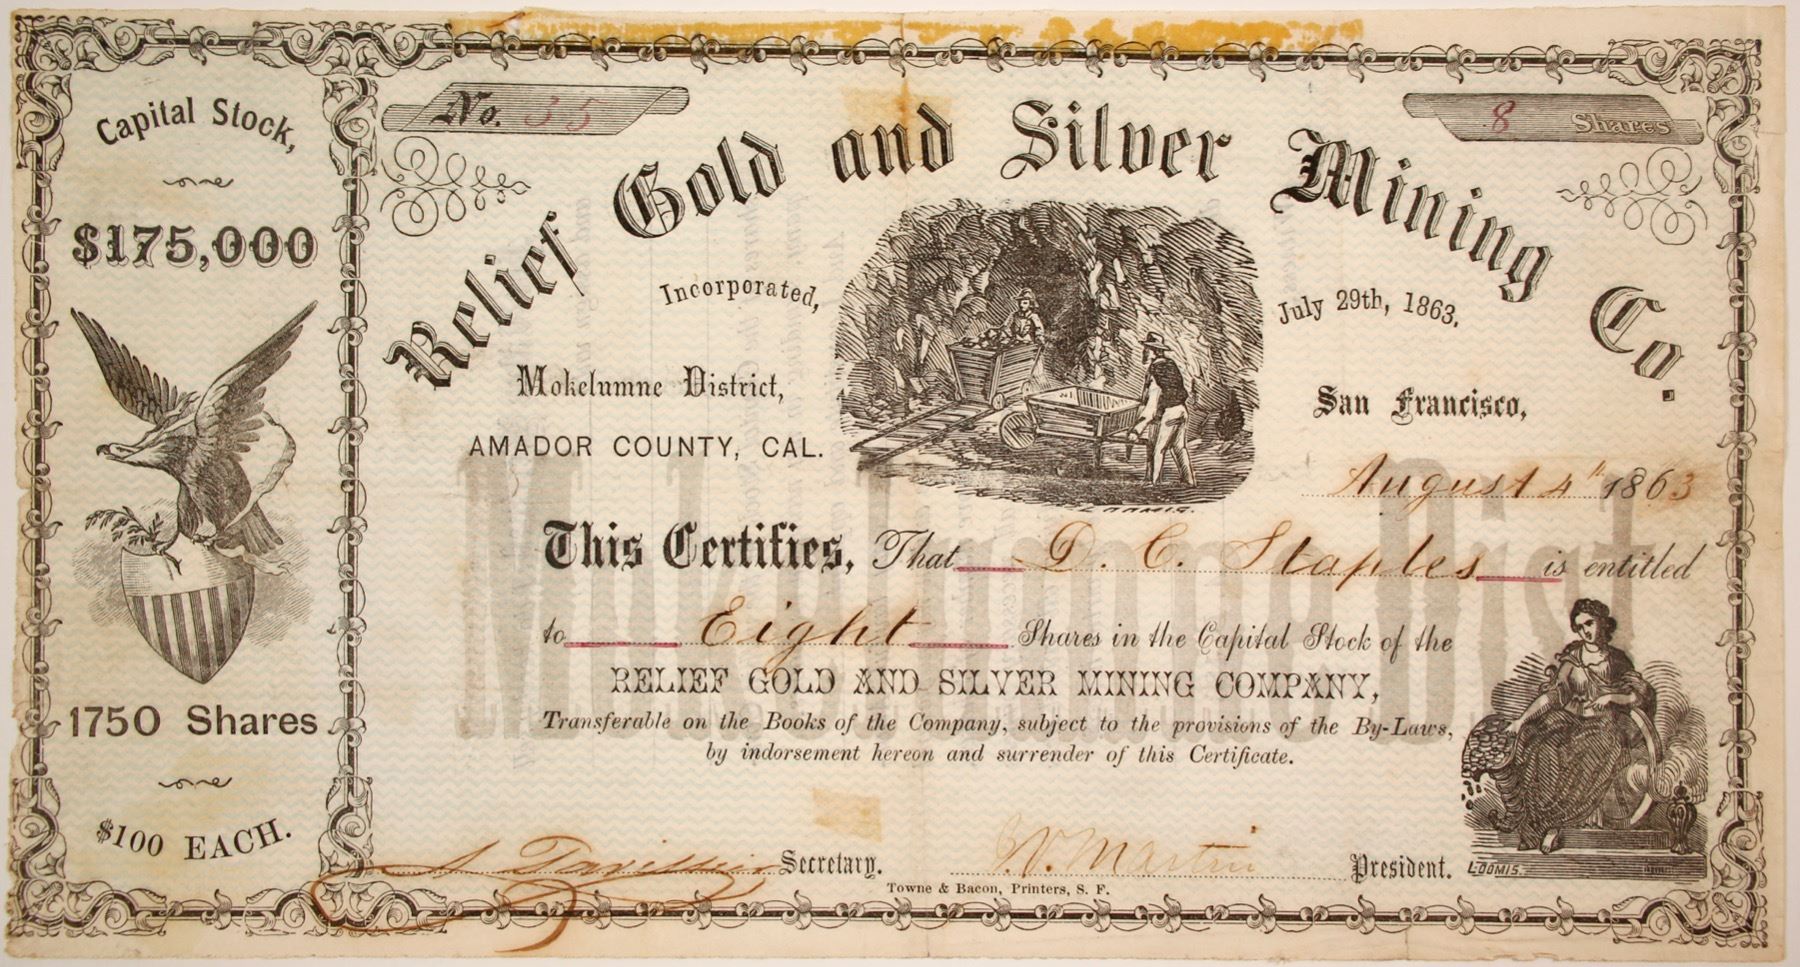 Capital Stock,
$175,000
1750 Shares
$100 EACH.
No. 35
8 Shares
Relief Gold and Silver Mining Co.
Incorporated, July 29th, 1863.
Mokelumne District,
AMADOR COUNTY, CAL.
San Francisco,
August 4th 1863
LOOMIS.
This Certifies, That D. C. Staples is entitled
to Eight Shares in the Capital Stock of the
RELIEF GOLD AND SILVER MINING COMPANY,
Transferable on the Books of the Company, subject to the provisions of the By-Laws,
by indorsement hereon and surrender of this Certificate.
Mokelumne Dist
Secretary.
Martin President.
LOOMIS.
Towne & Bacon, Printers, S. F.